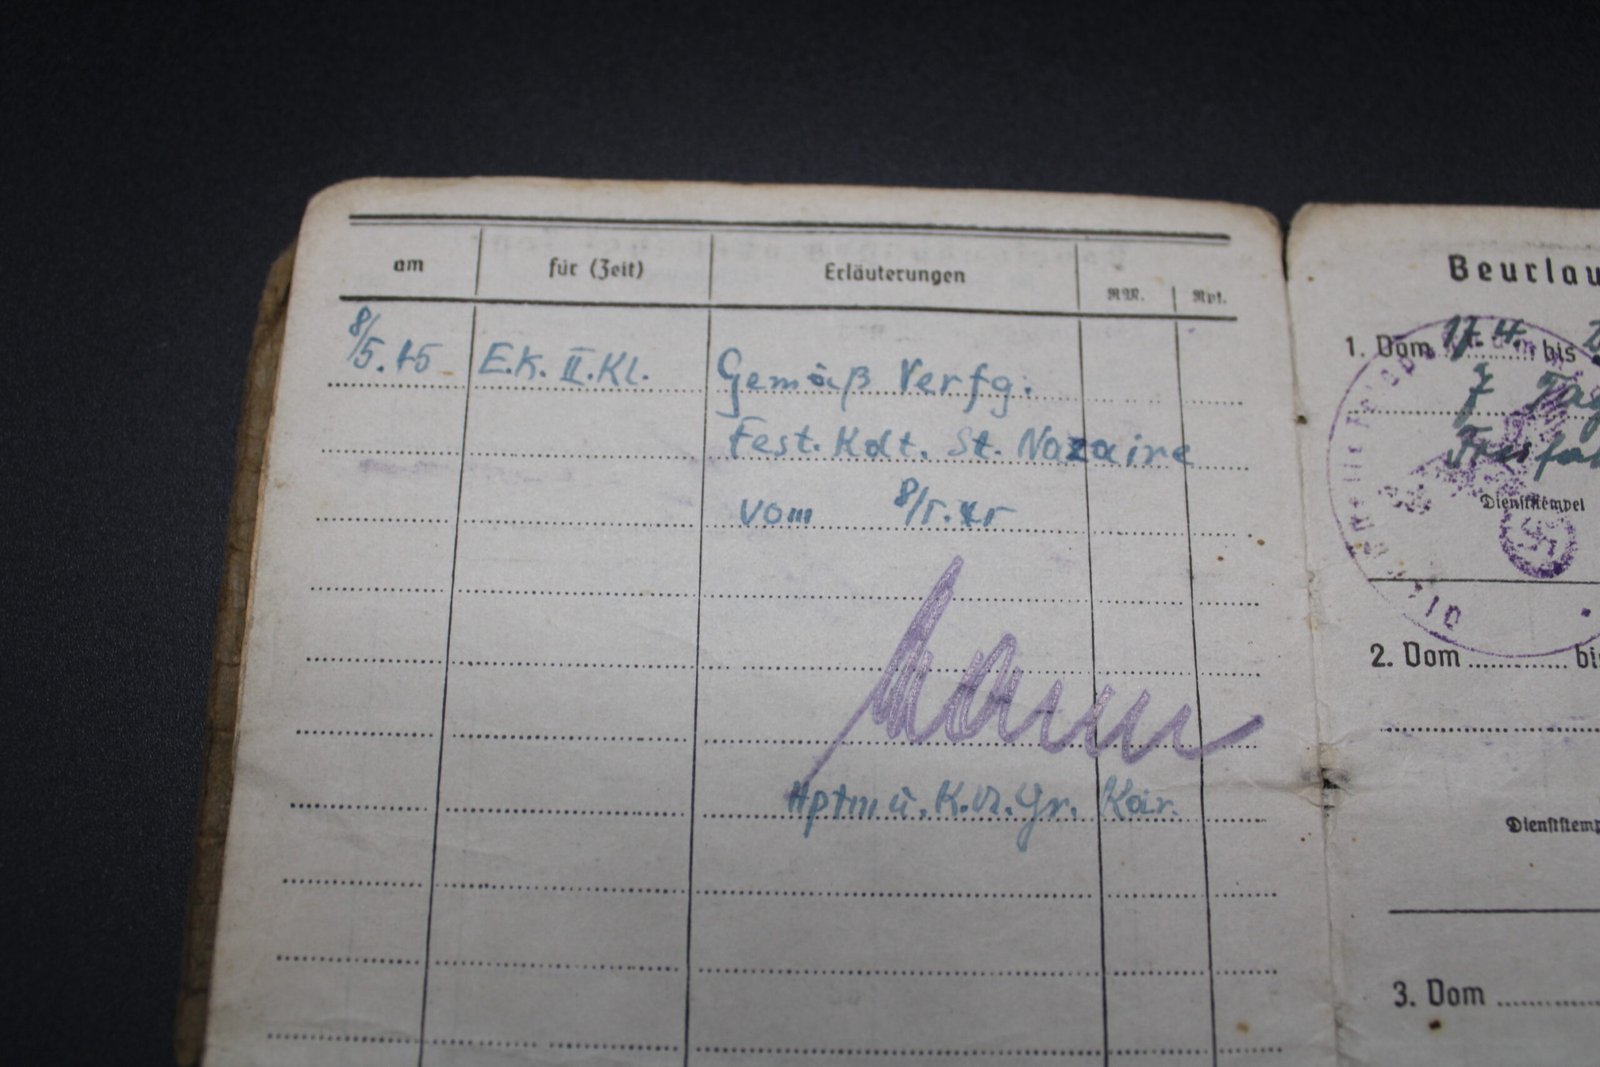 am für (Zeit) Erläuterungen RM. Rpf.
8/5.45 E.K. II.Kl. Gemäß Verfg.
Fest. Kdt. St. Nazaire
vom 8/5.45
Hptm u. K.
Beurlau
1. Vom 17.4. bis
7 Tag
Dienststempel
2. Vom bis
Dienststemp
3. Vom